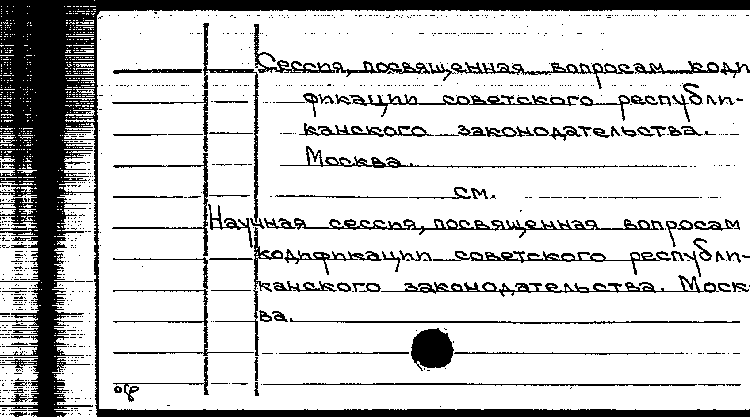 Сессия, посвященная вопросам коди
фикации советского республи-
канского законодательства.
Москва.
см.
Научная сессия, посвященная вопросам
кодификации советского республи-
канского законодательства. Моск
ва.